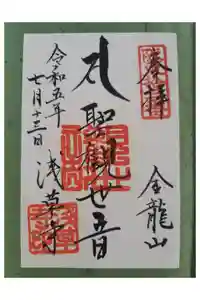 奉拝
金龍山
聖観世音
浅草寺
令和五年
七月十三日